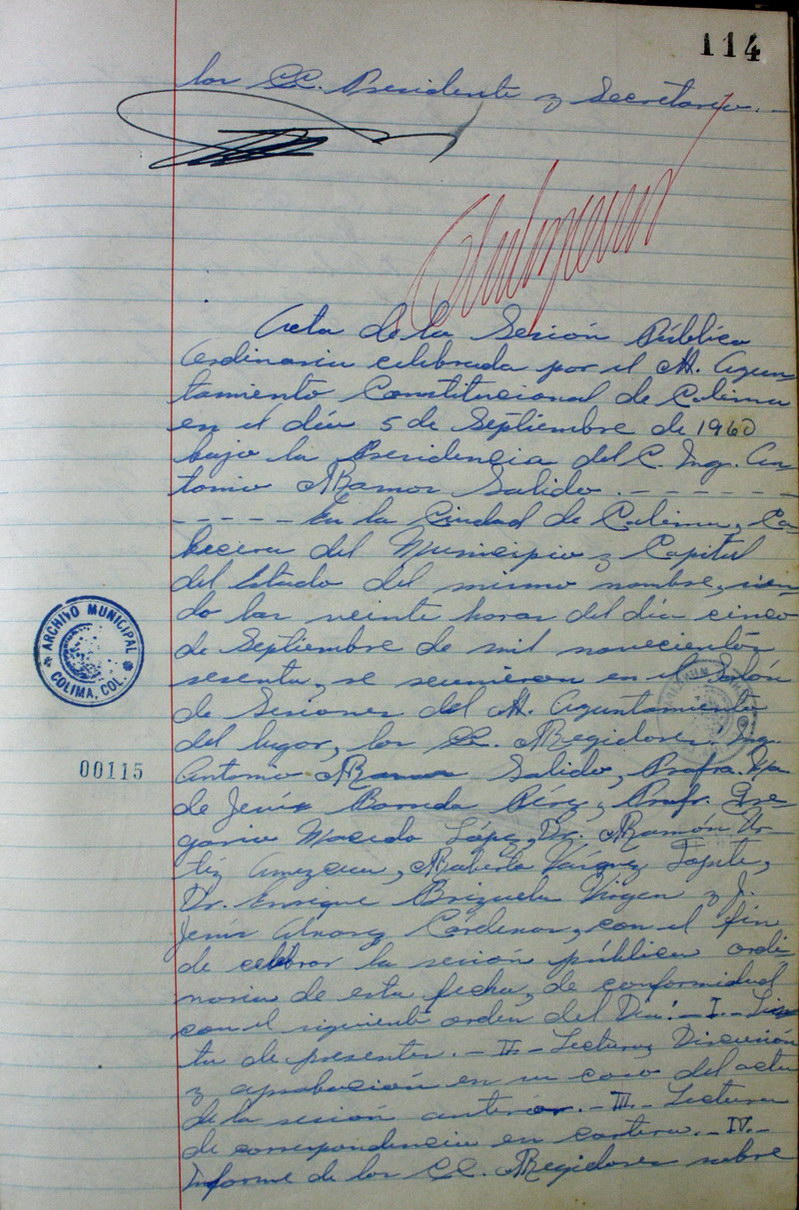 114
los CC. Presidente y Secretario.-
Acta de la Sesión Pública
Ordinaria celebrada por el H. Ayun-
tamiento Constitucional de Colima
en el día 5 de Septiembre de 1960
bajo la Presidencia del C. Ing. An-
tonio Ramos Salido.- - - - - -
- - - - - En la Ciudad de Colima, Ca-
becera del Municipio y Capital
del Estado del mismo nombre, sien-
do las veinte horas del día cinco
de Septiembre de mil novecientos
sesenta, se reunieron en el Salón
de Sesiones del H. Ayuntamiento
del lugar, los CC. Regidores: Ing.
Antonio Ramos Salido, Profra. Ma.
de Jesús Barreda Pérez, Profr. Gre-
gorio Macedo López, Dr. Ramón Or-
tiz Amezcua, Roberto Vázquez
Dr. Enrique Brizuela Virgen y J.
Jesús Alvarez Cárdenas, con el fin
de celebrar la sesión pública ordi-
naria de esta fecha, de conformidad
con el siguiente orden del Día: - I.- Lis-
ta de presentes.- II.- Lectura, Discusión
y aprobación en su caso del acta
de la sesión anterior.- III.- Lectura
de correspondencia en cartera.- IV.-
Informe de los CC. Regidores sobre
ARCHIVO MUNICIPAL
COLIMA, COL.
00115